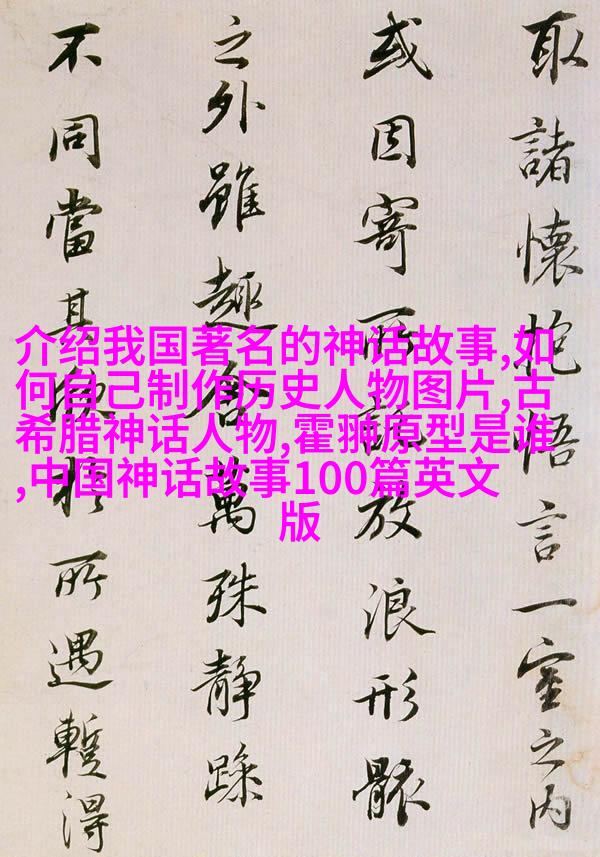 取諸懷抱悟言一室之内
或因寄所託放浪形骸
之外雖趣舍萬殊静躁
不同當其欣於所遇暫得
介绍我国著名的神话故事,如
何自己制作历史人物图片,古
希腊神话人物,霍翀原型是谁
,中国神话故事100篇英文
版